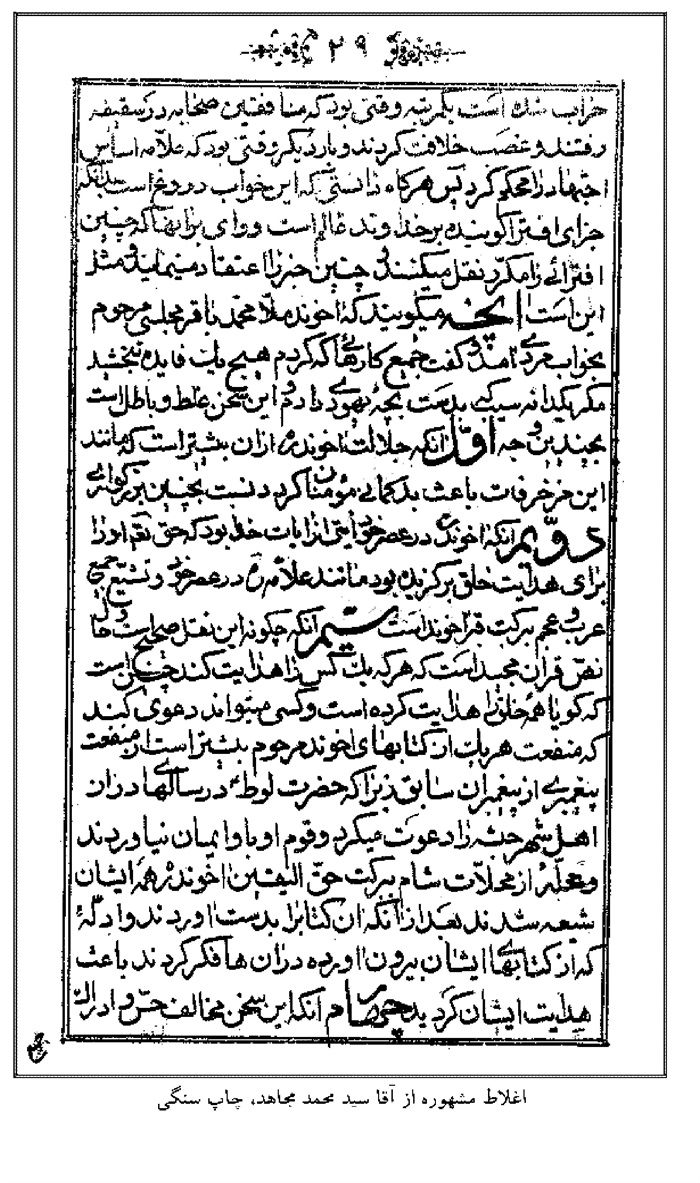 ۲۹
خراب شده است یکمرتبه وقتی بود که منافقین صحابه در سقیفه
رفتند و غصب خلافت کردند و بار دیگر وقتی بود که علامه اساس
اجتهاد را محکم کرد پس هرگاه دانستی که این خواب دروغ است بدانکه
جزای افترا گوینده بر خداوند عالم است و وای بر آنها که چنین
افترائی را مکرر نقل میکنند و چنین خبر را اعتقاد مینمایند و مثل
این است آنچه میگویند که آخوند ملا محمد باقر مجلسی مرحوم
بخواب مردی آمد و گفت جمیع کارهائی که کردم هیچ یک فایده نبخشید
مگر یکدانه سیب که بدست بچه یهودی دادم و این سخن غلط و باطل است
بچندین وجه اول آنکه جلالت آخوند ره ازان بیشتر است که مانند
این مزخرفات باعث بدگمانی مؤمنان گردد نسبت بچنین بزرگواری
دویم آنکه آخوند ره در عصر خود آیتی از آیات خدا بود که حق تعم او را
برای هدایت خلق برگزیده بود مانند علامه ره در عصر خود و تشیع جمیع
عرب و عجم ببرکت قرآخوند است سیم آنکه چگونه این نقل صحیح است حال آنکه
نص قرآن مجید است که هرکه یک کس را هدایت کند چنان است
که گویا همه خلق را هدایت کرده است و کسی میتواند دعوی کند
که منفعت هر یک از کتابهای آخوند مرحوم بیشتر است از منفعت
پیغمبری از پیغمبران سابق زیرا که حضرت لوط ع در سالها دران
اهل شهر خود را دعوت میکرد و قوم او باو ایمان نیاوردند
و محله از محلات شام ببرکت حق الیقین آخوند ره همه ایشان
شیعه شدند بعد از آنکه ان کتابرا بدست اوردند و ادله
که از کتابهای ایشان بیرون اورده دران ها فکر کردند باعث
هدایت ایشان گردید چهارم آنکه این سخن مخالف حس و ادراک
اغلاط مشهوره از آقا سید محمد مجاهد، چاپ سنگی